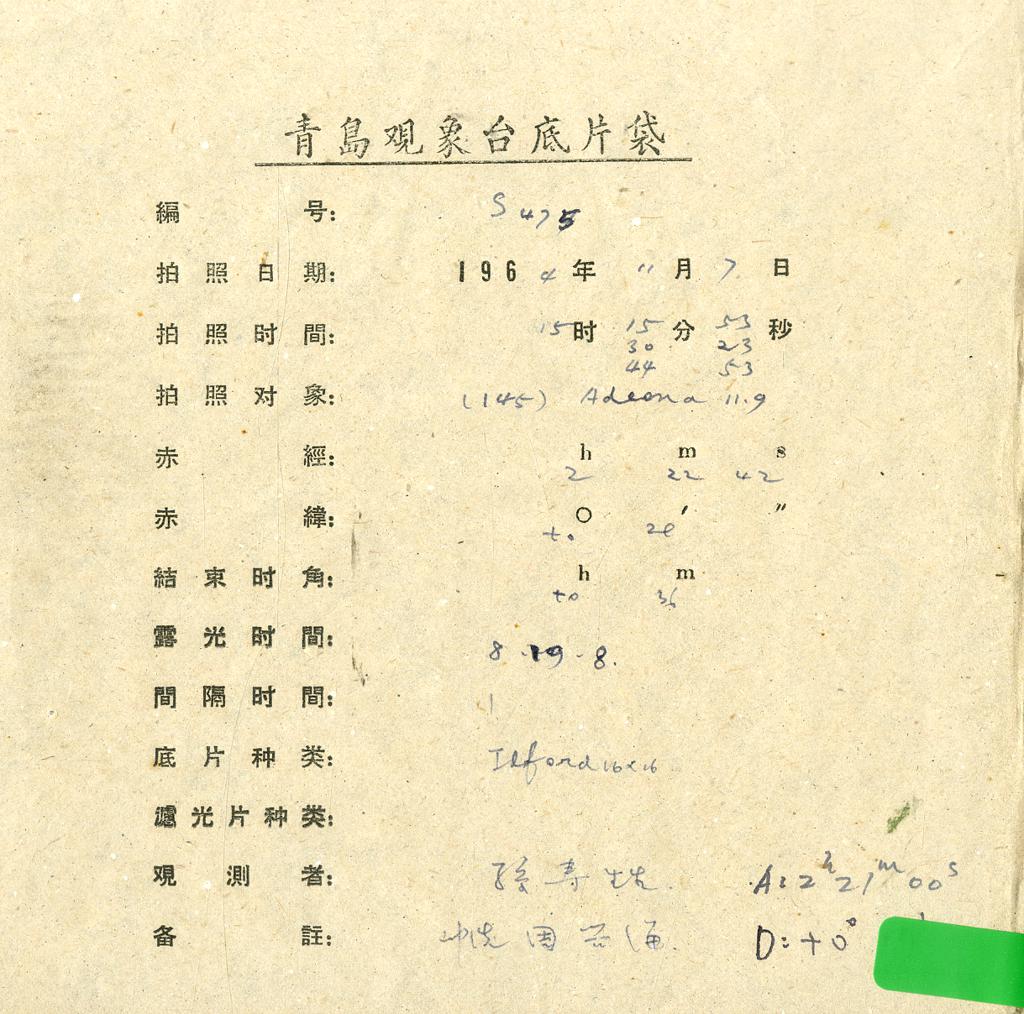 青島观象台底片袋
編号: S475
拍照日期: 1964年11月7日
拍照时間: 15时15分53秒
30 23
44 53
拍照对象: (145) Adeona 11.9
赤經: h m s
2 22 42
赤緯: ○ ′ ″
+0
結束时角: h m
+0 36
露光时間: 8.19.8.
間隔时間: 1
底片种类: Ilford 16×16
濾光片种类:
观測者: 孫寿 A: 2h 21m 00s
备註: 冲洗 D: +0°